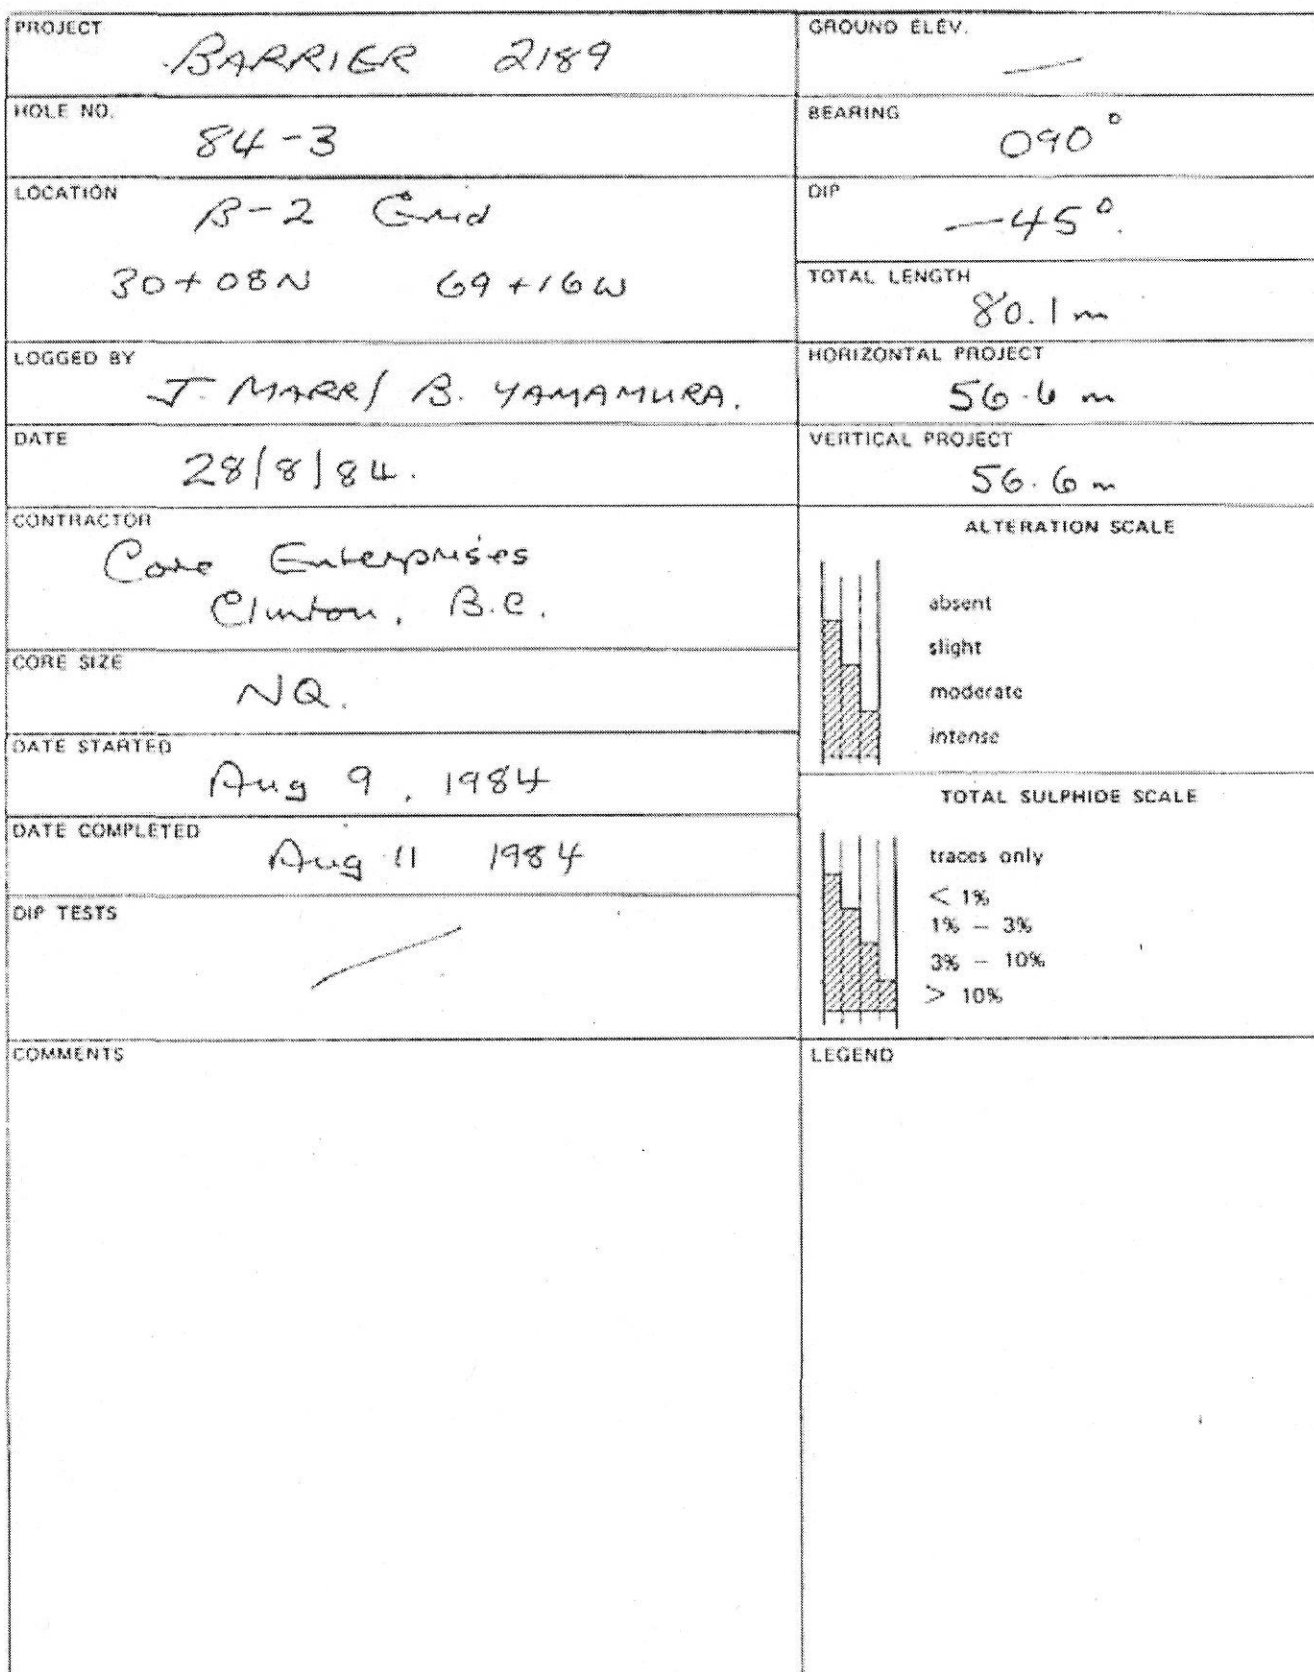 PROJECT
BARRIER 2189
HOLE NO.
84-3
LOCATION
B-2 Grid
30+08N 69+16W
LOGGED BY
J. MARR/ B. YAMAMURA.
DATE
28/8/84.
CONTRACTOR
Core Enterprises
Clinton, B.C.
CORE SIZE
NQ.
DATE STARTED
Aug 9, 1984
DATE COMPLETED
Aug 11 1984
DIP TESTS
COMMENTS
GROUND ELEV.
—
BEARING
090°
DIP
-45°.
TOTAL LENGTH
80.1 m
HORIZONTAL PROJECT
56.6 m
VERTICAL PROJECT
56.6 m
ALTERATION SCALE
absent
slight
moderate
intense
TOTAL SULPHIDE SCALE
traces only
< 1%
1% – 3%
3% – 10%
> 10%
LEGEND